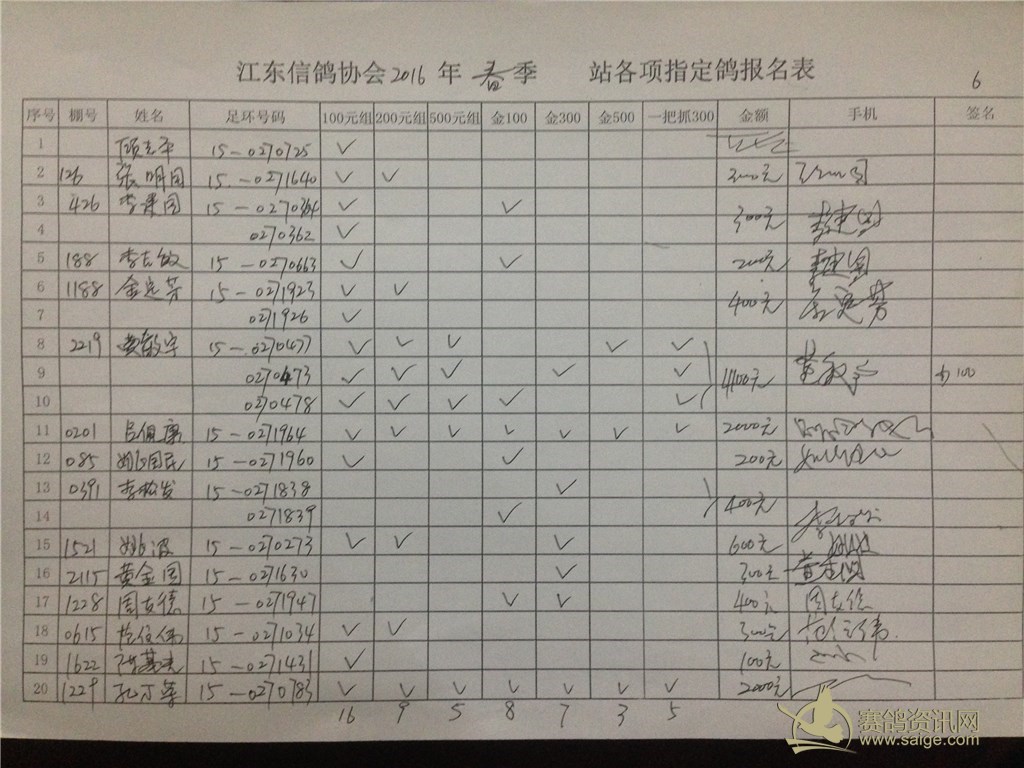 江东信鸽协会2016年 春季 站各项指定鸽报名表
6
序号 棚号 姓名 足环号码 100元组 200元组 500元组 金100 金300 金500 一把抓300 金额 手机 签名
1 15-0270725 ✓
2 126 张明国 15-0271640 ✓ ✓ 300元
3 426 李建国 15-0270364 ✓ ✓ 300元 李建国
4 0270362 ✓
5 188 李志敏 15-0270663 ✓ ✓ 200元
6 1188 金定芳 15-0271923 ✓ ✓ 400元 金定芳
7 0271926 ✓
8 2219 15-0270477 ✓ ✓ ✓ ✓ ✓
9 0270473 ✓ ✓ ✓ ✓ ✓ 4100元
10 0270478 ✓ ✓ ✓ ✓ ✓
11 0201 吕佩康 15-0271964 ✓ ✓ ✓ ✓ ✓ ✓ ✓ 2000元
12 085 姚国民 15-0271960 ✓ ✓ 200元
13 0391 15-0271838 ✓ 400元
14 0271839 ✓
15 1521 15-0270273 ✓ ✓ ✓ 600元
16 2115 黄金国 15-0271630 ✓ 300元 黄金国
17 1228 周友德 15-0271947 ✓ ✓ 400元 周友德
18 0615 15-0271034 ✓ ✓ 300元
19 1622 15-0271431 ✓ 100元
20 1229 15-0270783 ✓ ✓ ✓ ✓ ✓ ✓ ✓ 2000元
16 9 5 8 7 3 5
赛鸽资讯网
www.saige.com